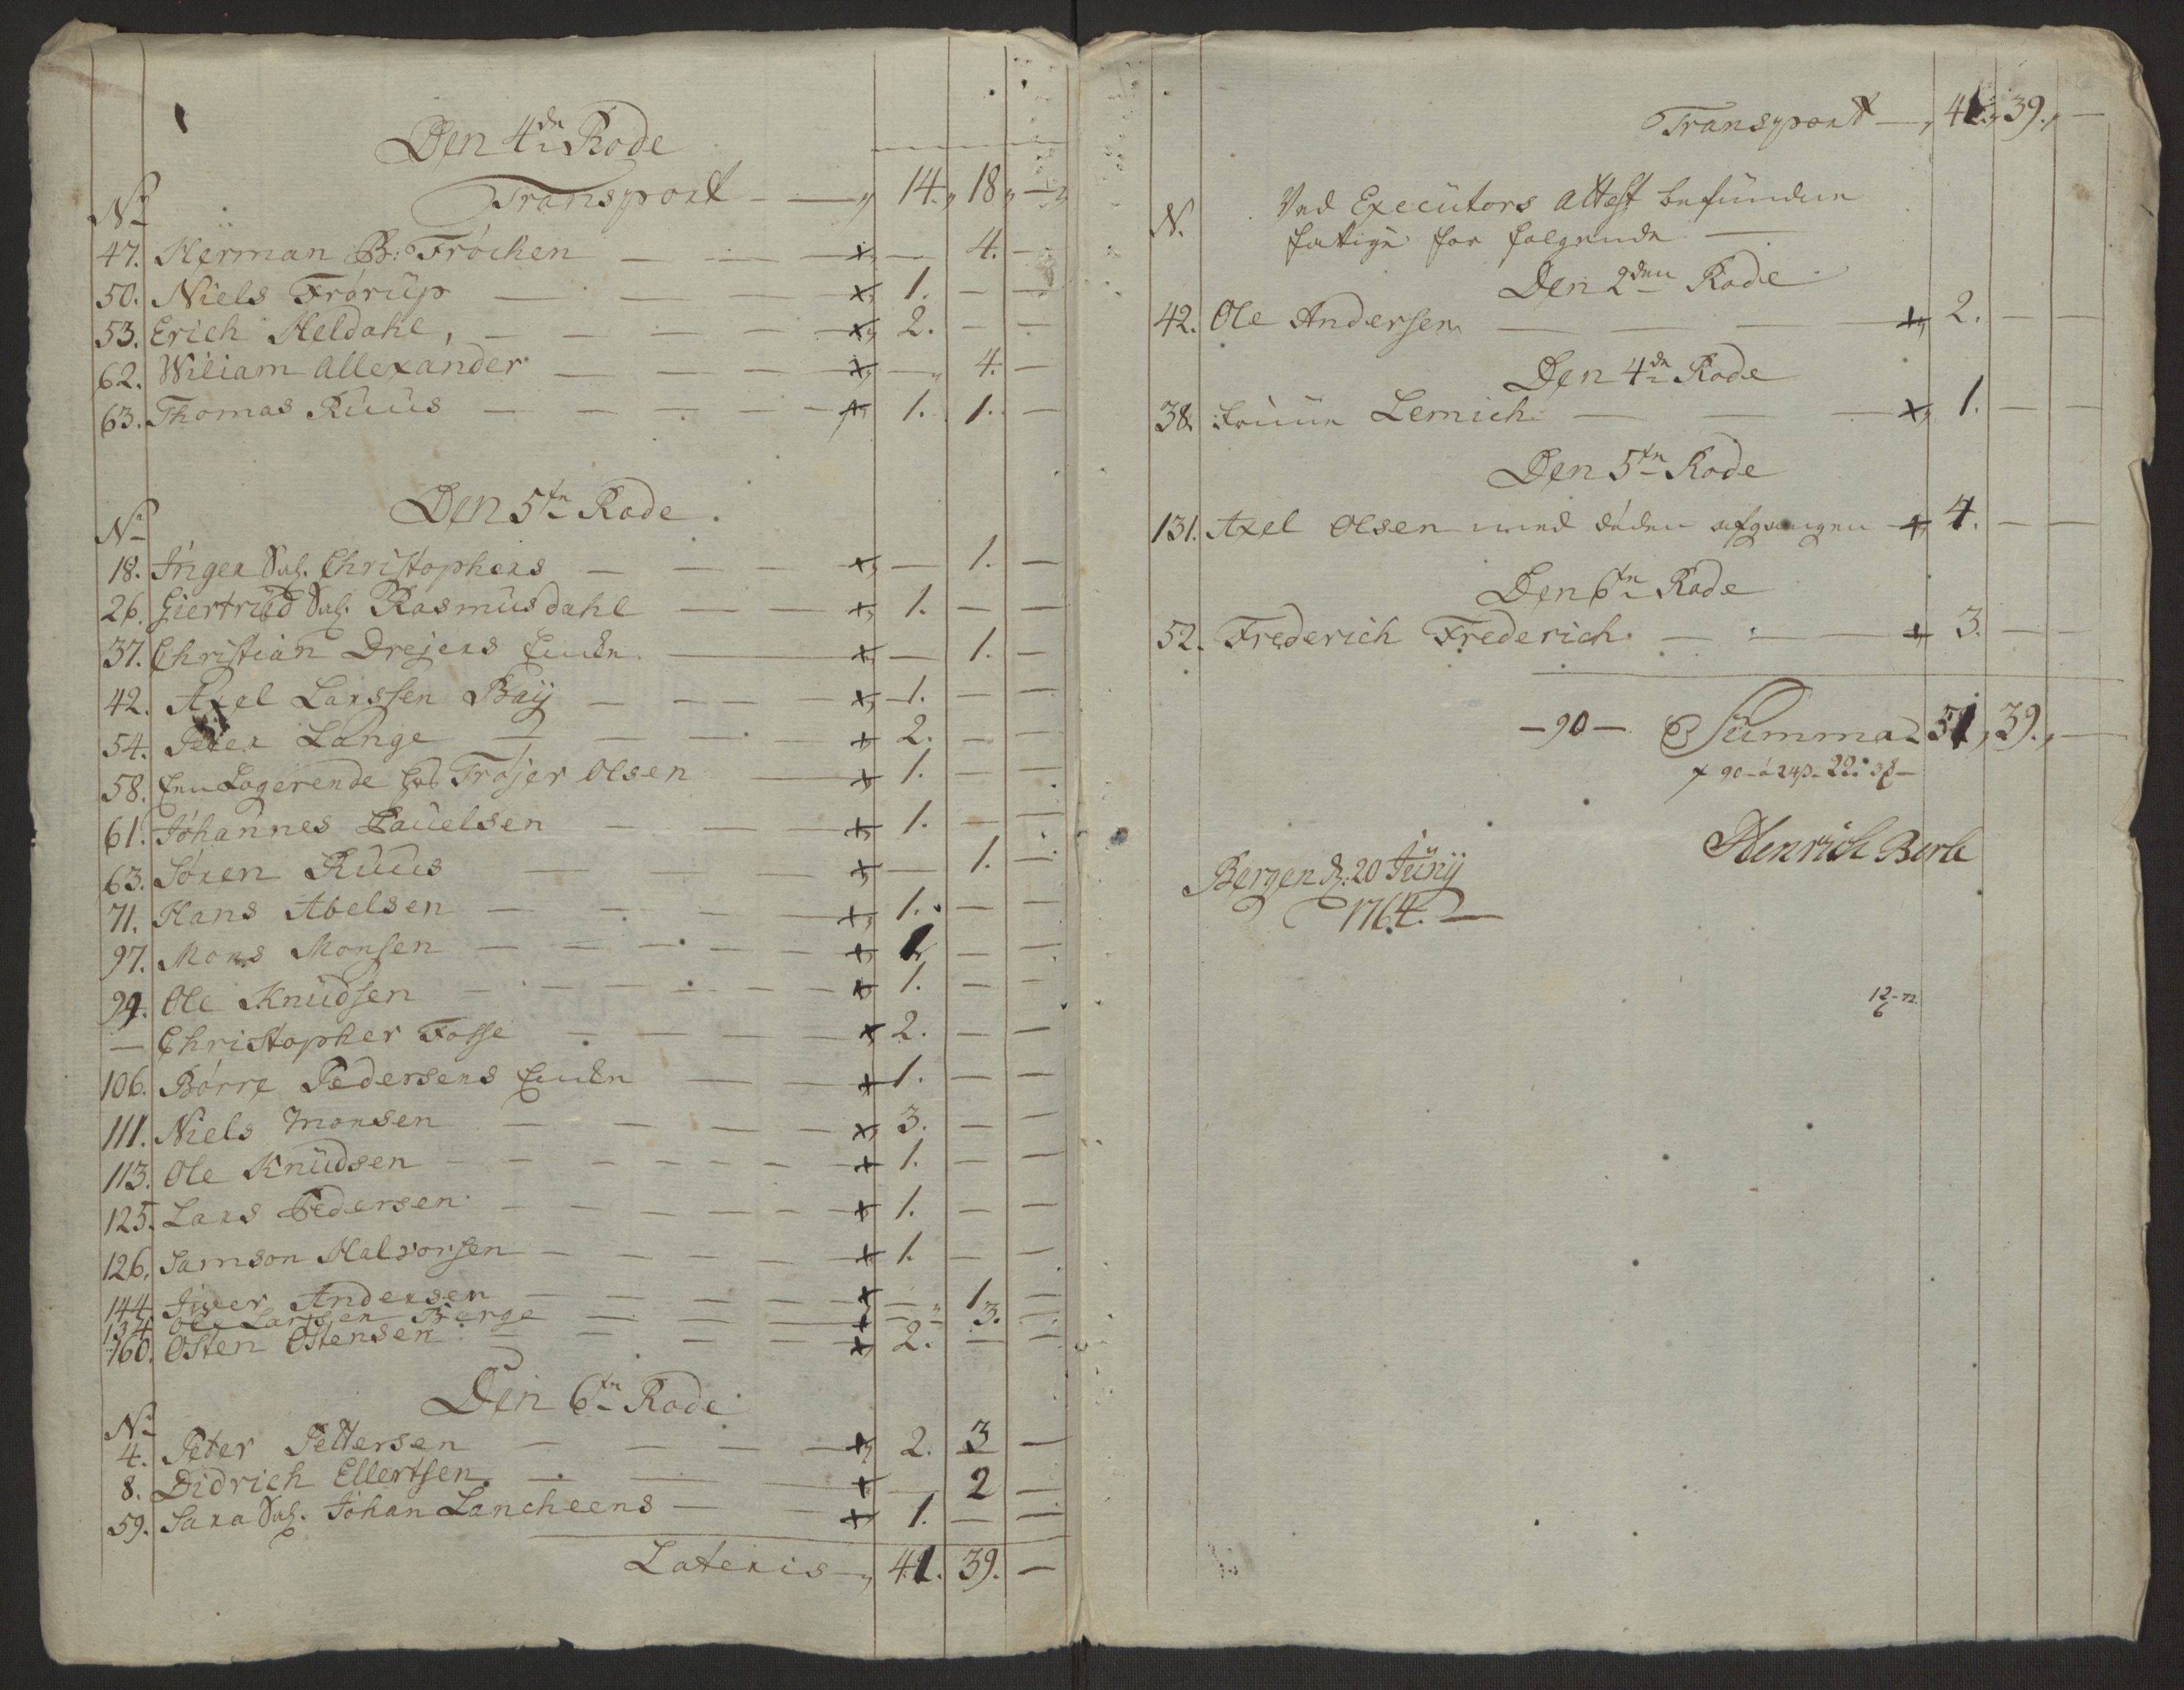 Den 4de Rode
No Transport — 14. 18. —
47. Herman B: Fröchen — x — 4. —
50. Niels Frörüp — x 1. — —
53. Erich Heldahl, — x 2. — —
62. Wiliam Allexander — x — 4. —
63. Thomas Rüüs — x 1. 1. —
Den 5te Rode.
No
18. Inger Sal. Christophers — x — 1. —
26. Giertrüd Sal. Rasmüs dahl — x 1. — —
37. Christian Drejers Encke — x — 1. —
42. Axel Larssen Baÿ — x 1. — —
54. Peter Lange — x 2. — —
58. Een Logerende hos Trojer Olsen — x 1. — —
61. Johannes Pauelsen — x 1. — —
63. Sören Rüüs — x — 1. —
71. Hans Abelsen — x 1. — —
97. Mons Monsen — x 1 — —
94. Ole Knüdsen — x 1. — —
— Christopher Fosse — x 2. — —
106. Börre Pedersens Encke — x 1. — —
111. Niels Monsen — x 3. — —
113. Ole Knüdsen — x 1. — —
125. Lars Pedersen — x 1. — —
126. Samson Halvorsen — x 1. — —
144 Iver Andersen — x — 1 —
134 Ole Larssen Berge — x — 3. —
160. Osten Ostensen — x 2. — —
Den 6te Rode
No
4. Peter Pettersen — x 2. 3 —
8. Didrich Ellertsen. — x — 2 —
59. Sara Sal. Johan Lancheens — x 1. — —
Lateris — 41. 39. —
Transport — 41. 39. —
N. Ved Executors Attest befunden
fatige for følgende —
Den 2den Rode
42. Ole Andersen — x 2. — —
Den 4de Rode
38. Lemich — x 1. — —
Den 5te Rode
131. Axel Olsen med döden afgangen x 4. — —
Den 6te Rode
52. Frederich Frederich — x 3. — —
— 90 — Summa 51, 39. —
x 90 - á 24s - 22: 3
Henrich Berle
Bergen d: 20 Junÿ
1764. —
12 - 72
6